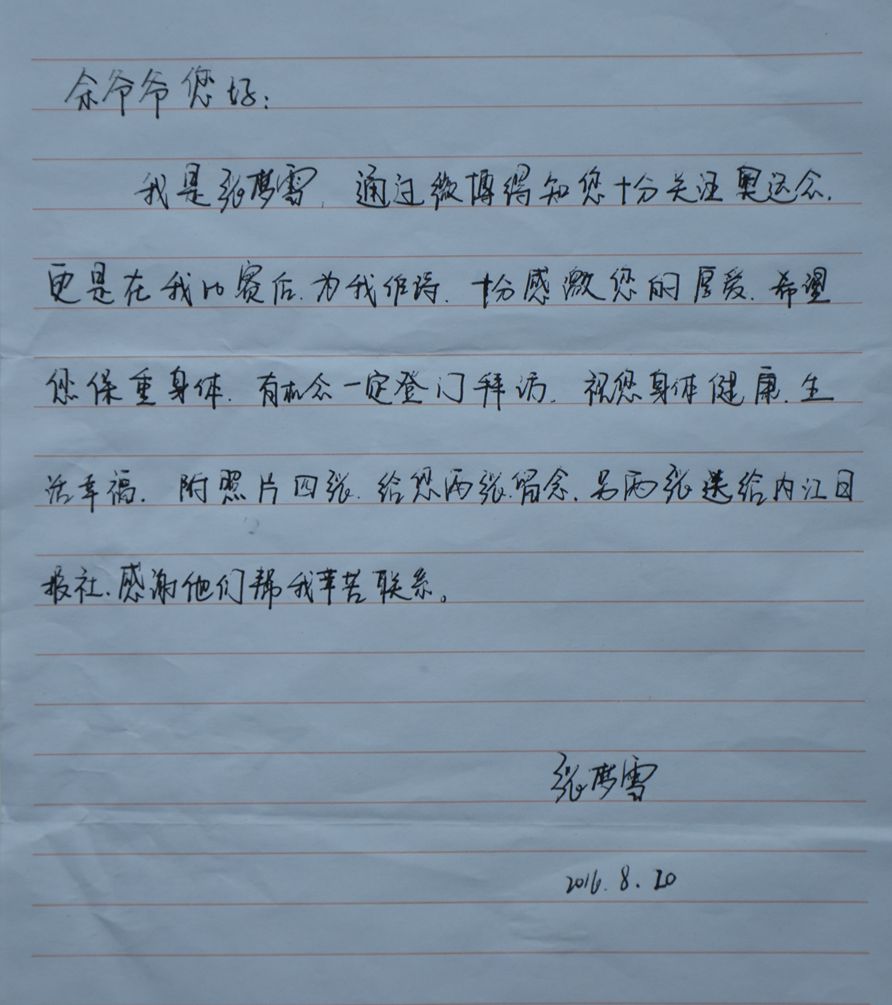 余爷爷您好:
我是张梦雪,通过微博得知您十分关注奥运会,
更是在我比赛后,为我作诗,十分感激您的厚爱,希望
您保重身体,有机会一定登门拜访,祝您身体健康,生
活幸福,附照片四张,给您两张留念,另两张送给内江日
报社,感谢他们帮我辛苦联系。
张梦雪
2016.8.20